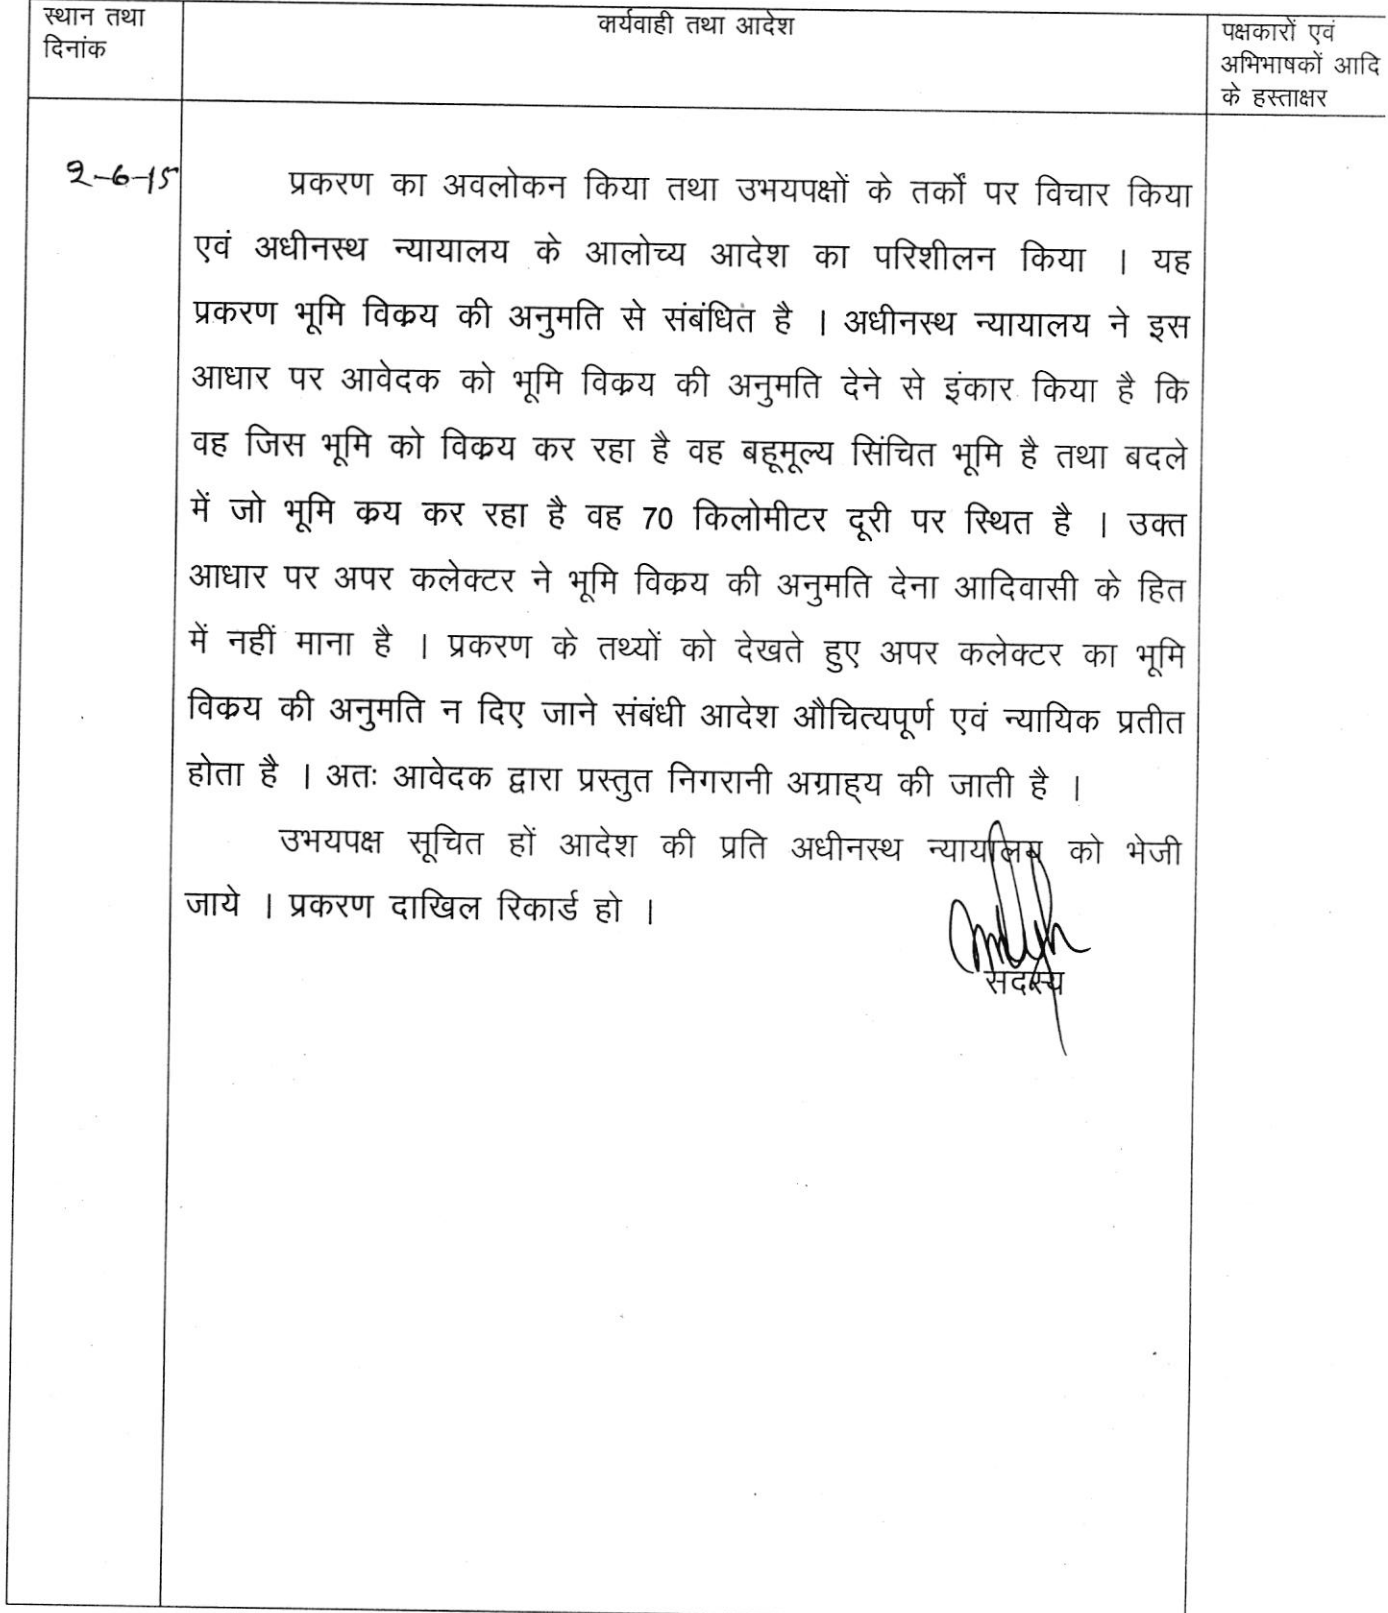 स्थान तथा
दिनांक
कार्यवाही तथा आदेश
पक्षकारों एवं
अभिभाषकों आदि
के हस्ताक्षर
2-6-15
प्रकरण का अवलोकन किया तथा उभयपक्षों के तर्कों पर विचार किया
एवं अधीनस्थ न्यायालय के आलोच्य आदेश का परिशीलन किया । यह
प्रकरण भूमि विक्रय की अनुमति से संबंधित है । अधीनस्थ न्यायालय ने इस
आधार पर आवेदक को भूमि विक्रय की अनुमति देने से इंकार किया है कि
वह जिस भूमि को विक्रय कर रहा है वह बहूमूल्य सिंचित भूमि है तथा बदले
में जो भूमि क्रय कर रहा है वह 70 किलोमीटर दूरी पर स्थित है । उक्त
आधार पर अपर कलेक्टर ने भूमि विक्रय की अनुमति देना आदिवासी के हित
में नहीं माना है । प्रकरण के तथ्यों को देखते हुए अपर कलेक्टर का भूमि
विक्रय की अनुमति न दिए जाने संबंधी आदेश औचित्यपूर्ण एवं न्यायिक प्रतीत
होता है । अतः आवेदक द्वारा प्रस्तुत निगरानी अग्राह्य की जाती है ।
उभयपक्ष सूचित हों आदेश की प्रति अधीनस्थ न्यायालय को भेजी
जाये । प्रकरण दाखिल रिकार्ड हो ।
सदस्य